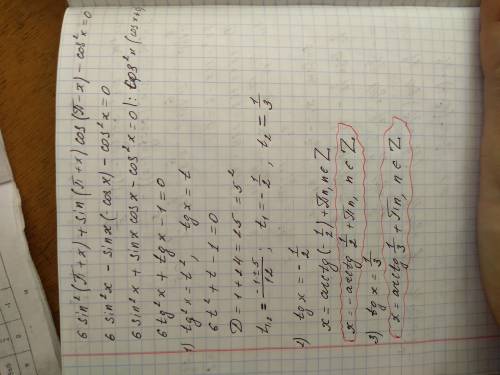 6 sin²(π+x) + sin(π+x) cos(π-x) - cos²x = 0
6 sin²x - sinx(-cosx) - cos²x = 0
6 sin²x + sinx cosx - cos²x = 0 | : cos²x (cosx≠0)
6 tg²x + tgx - 1 = 0
1) tg²x = t², tgx = t
6t² + t - 1 = 0
D = 1 + 24 = 25 = 5²
t₁,₂ = (-1±5)/12 ; t₁ = -1/2 , t₂ = 1/3
2) tgx = -1/2
x = arctg(-1/2) + πn, n∈Z
x = -arctg 1/2 + πn, n∈Z
3) tgx = 1/3
x = arctg 1/3 + πn, n∈Z